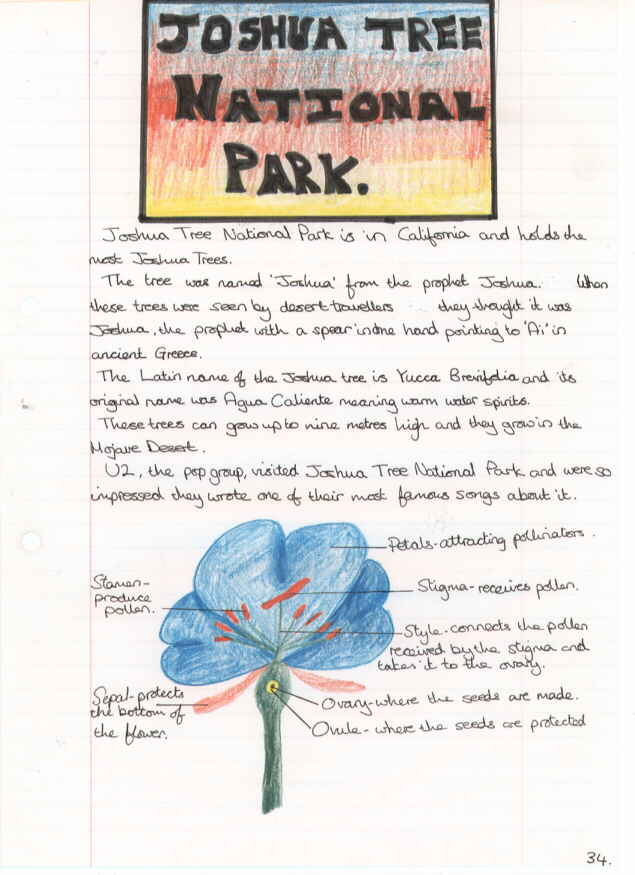 JOSHUA TREE
NATIONAL
PARK.
Joshua Tree National Park is in California and holds the
most Joshua Trees.
The tree was named 'Joshua' from the prophet Joshua. When
these trees were seen by desert travellers they thought it was
Joshua, the prophet with a spear in one hand pointing to 'Ai' in
ancient Greece.
The Latin name of the Joshua tree is Yucca Brevifolia and its
original name was Agua Caliente meaning warm water spirits.
These trees can grow up to nine metres high and they grow in the
Mojave Desert.
U2, the pop group, visited Joshua Tree National Park and were so
impressed they wrote one of their most famous songs about it.
Petals-attracting pollinators.
Stamen-
produce
pollen.
Stigma-receives pollen.
Style-connects the pollen
received by the stigma and
takes it to the ovary.
Sepal-protects
the bottom of
the flower.
Ovary-where the seeds are made.
Ovule-where the seeds are protected
34.